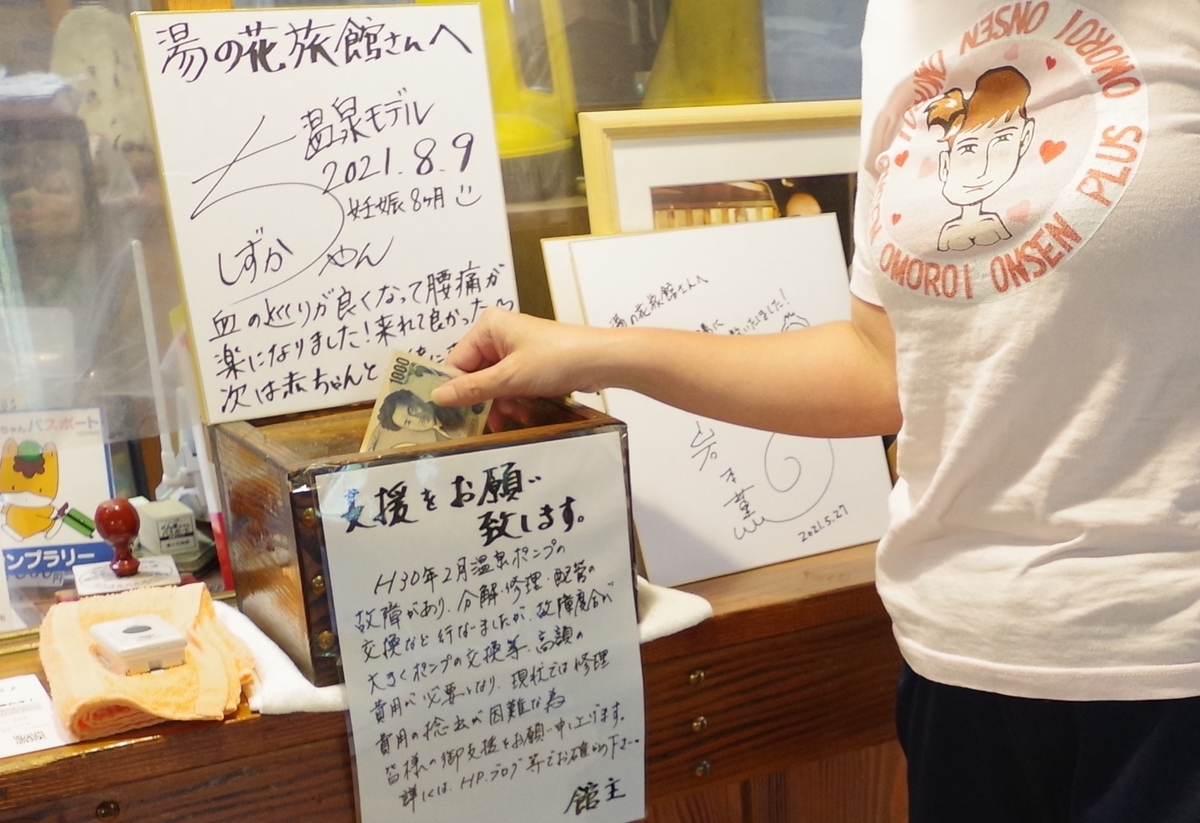 湯の花旅館さんへ
温泉モデル
2021.8.9
妊娠8ヶ月
しずかちゃん
血のめぐりが良くなって腰痛が
楽になりました!来れて良かった
次は赤ちゃんと
湯の花旅館さんへ
いたしました!
2021.5.27
1000
支援をお願い
致します。
H30年2月温泉ポンプの
故障があり、分解・修理・配管の
交換など行なましたが、故障度合が
大きくポンプの交換等、高額の
費用が必要となり、現状では修理
費用の捻出が困難な為
皆様の御支援をお願い申し上げます。
詳しくは、HP.ブログ等でお確め下さい。
館主
ちゃんパスポート
ンプラリー
ONSEN
OMOROI ONSEN PLUS
OMOROI